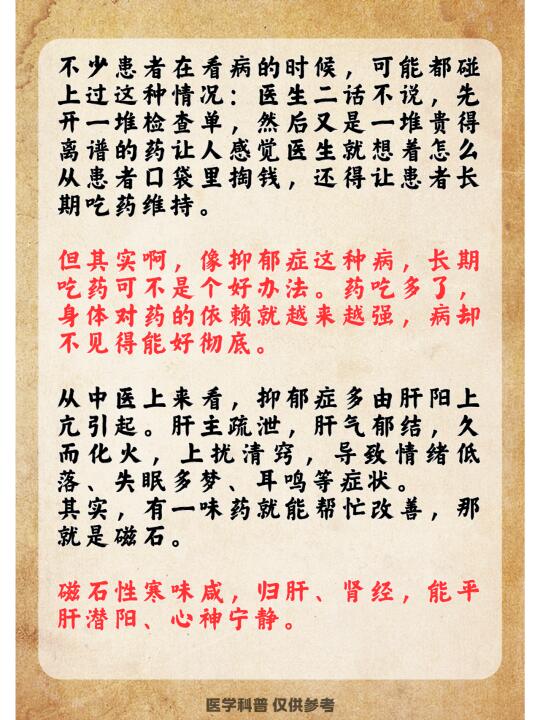 不少患者在看病的时候，可能都碰
上过这种情况：医生二话不说，先
开一堆检查单，然后又是一堆贵得
离谱的药让人感觉医生就想着怎么
从患者口袋里掏钱，还得让患者长
期吃药维持。
但其实啊，像抑郁症这种病，长期
吃药可不是个好办法。药吃多了，
身体对药的依赖就越来越强，病却
不见得能好彻底。
从中医上来看，抑郁症多由肝阳上
亢引起。肝主疏泄，肝气郁结，久
而化火，上扰清窍，导致情绪低
落、失眠多梦、耳鸣等症状。
其实，有一味药就能帮忙改善，那
就是磁石。
磁石性寒味咸，归肝、肾经，能平
肝潜阳、心神宁静。
医学科普 仅供参考